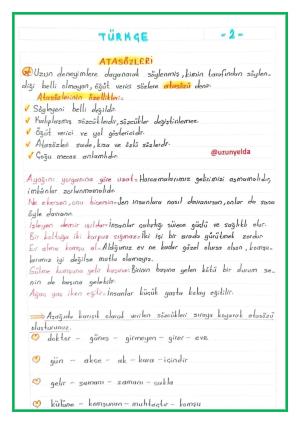 TÜRKÇE
- 2 -
ATASÖZLERİ
Uzun deneyimlere dayanarak söylenmiş, kimin tarafından söylen-
diği belli olmayan, öğüt verici sözlere atasözü denir.
Atasözlerinin Özellikleri
Söyleyeni belli değildir.
Kalıplaşmış sözcüklerdir, sözcükler değiştirilemez.
Öğüt verici ve yol göstericidir.
Atasözleri sade, kısa ve özlü sözlerdir.
Çoğu mecaz anlamlıdır.
@uzunyelda
Ayağını yorganına göre uzat = Harcamalarımız gelirimizi aşmamalıdır,
imkânlar zorlanmamalıdır.
Ne ekersen, onu biçersin = den insanlara nasıl davranırsan, onlar da sana
öyle davranır.
İşleyen demir ışıldar = İnsanlar çalıştığı sürece güçlü ve sağlıklı olur.
Bir koltuğa iki karpuz sığmaz = İki işi bir arada yürütmek zordur.
Ev alma komşu al = Aldığımız ev ne kadar güzel olursa olsun, komşu-
larımız iyi değilse mutlu olamayız.
Gülme komşuna gelir başına = Birinin başına gelen kötü bir durum se-
nin de başına gelebilir.
Ağaç yaş iken eğilir = İnsanlar küçük yaşta kolay eğitilir.
Aşağıda karışık olarak verilen sözcükleri sıraya koyarak atasözü
oluşturunuz.
doktor - güneş - girmeyen - girer - eve
gün - akçe - ak - kara - içindir
gelir - samanı - zamanı - sakla
külüne - komşunun - muhtaçtır - komşu